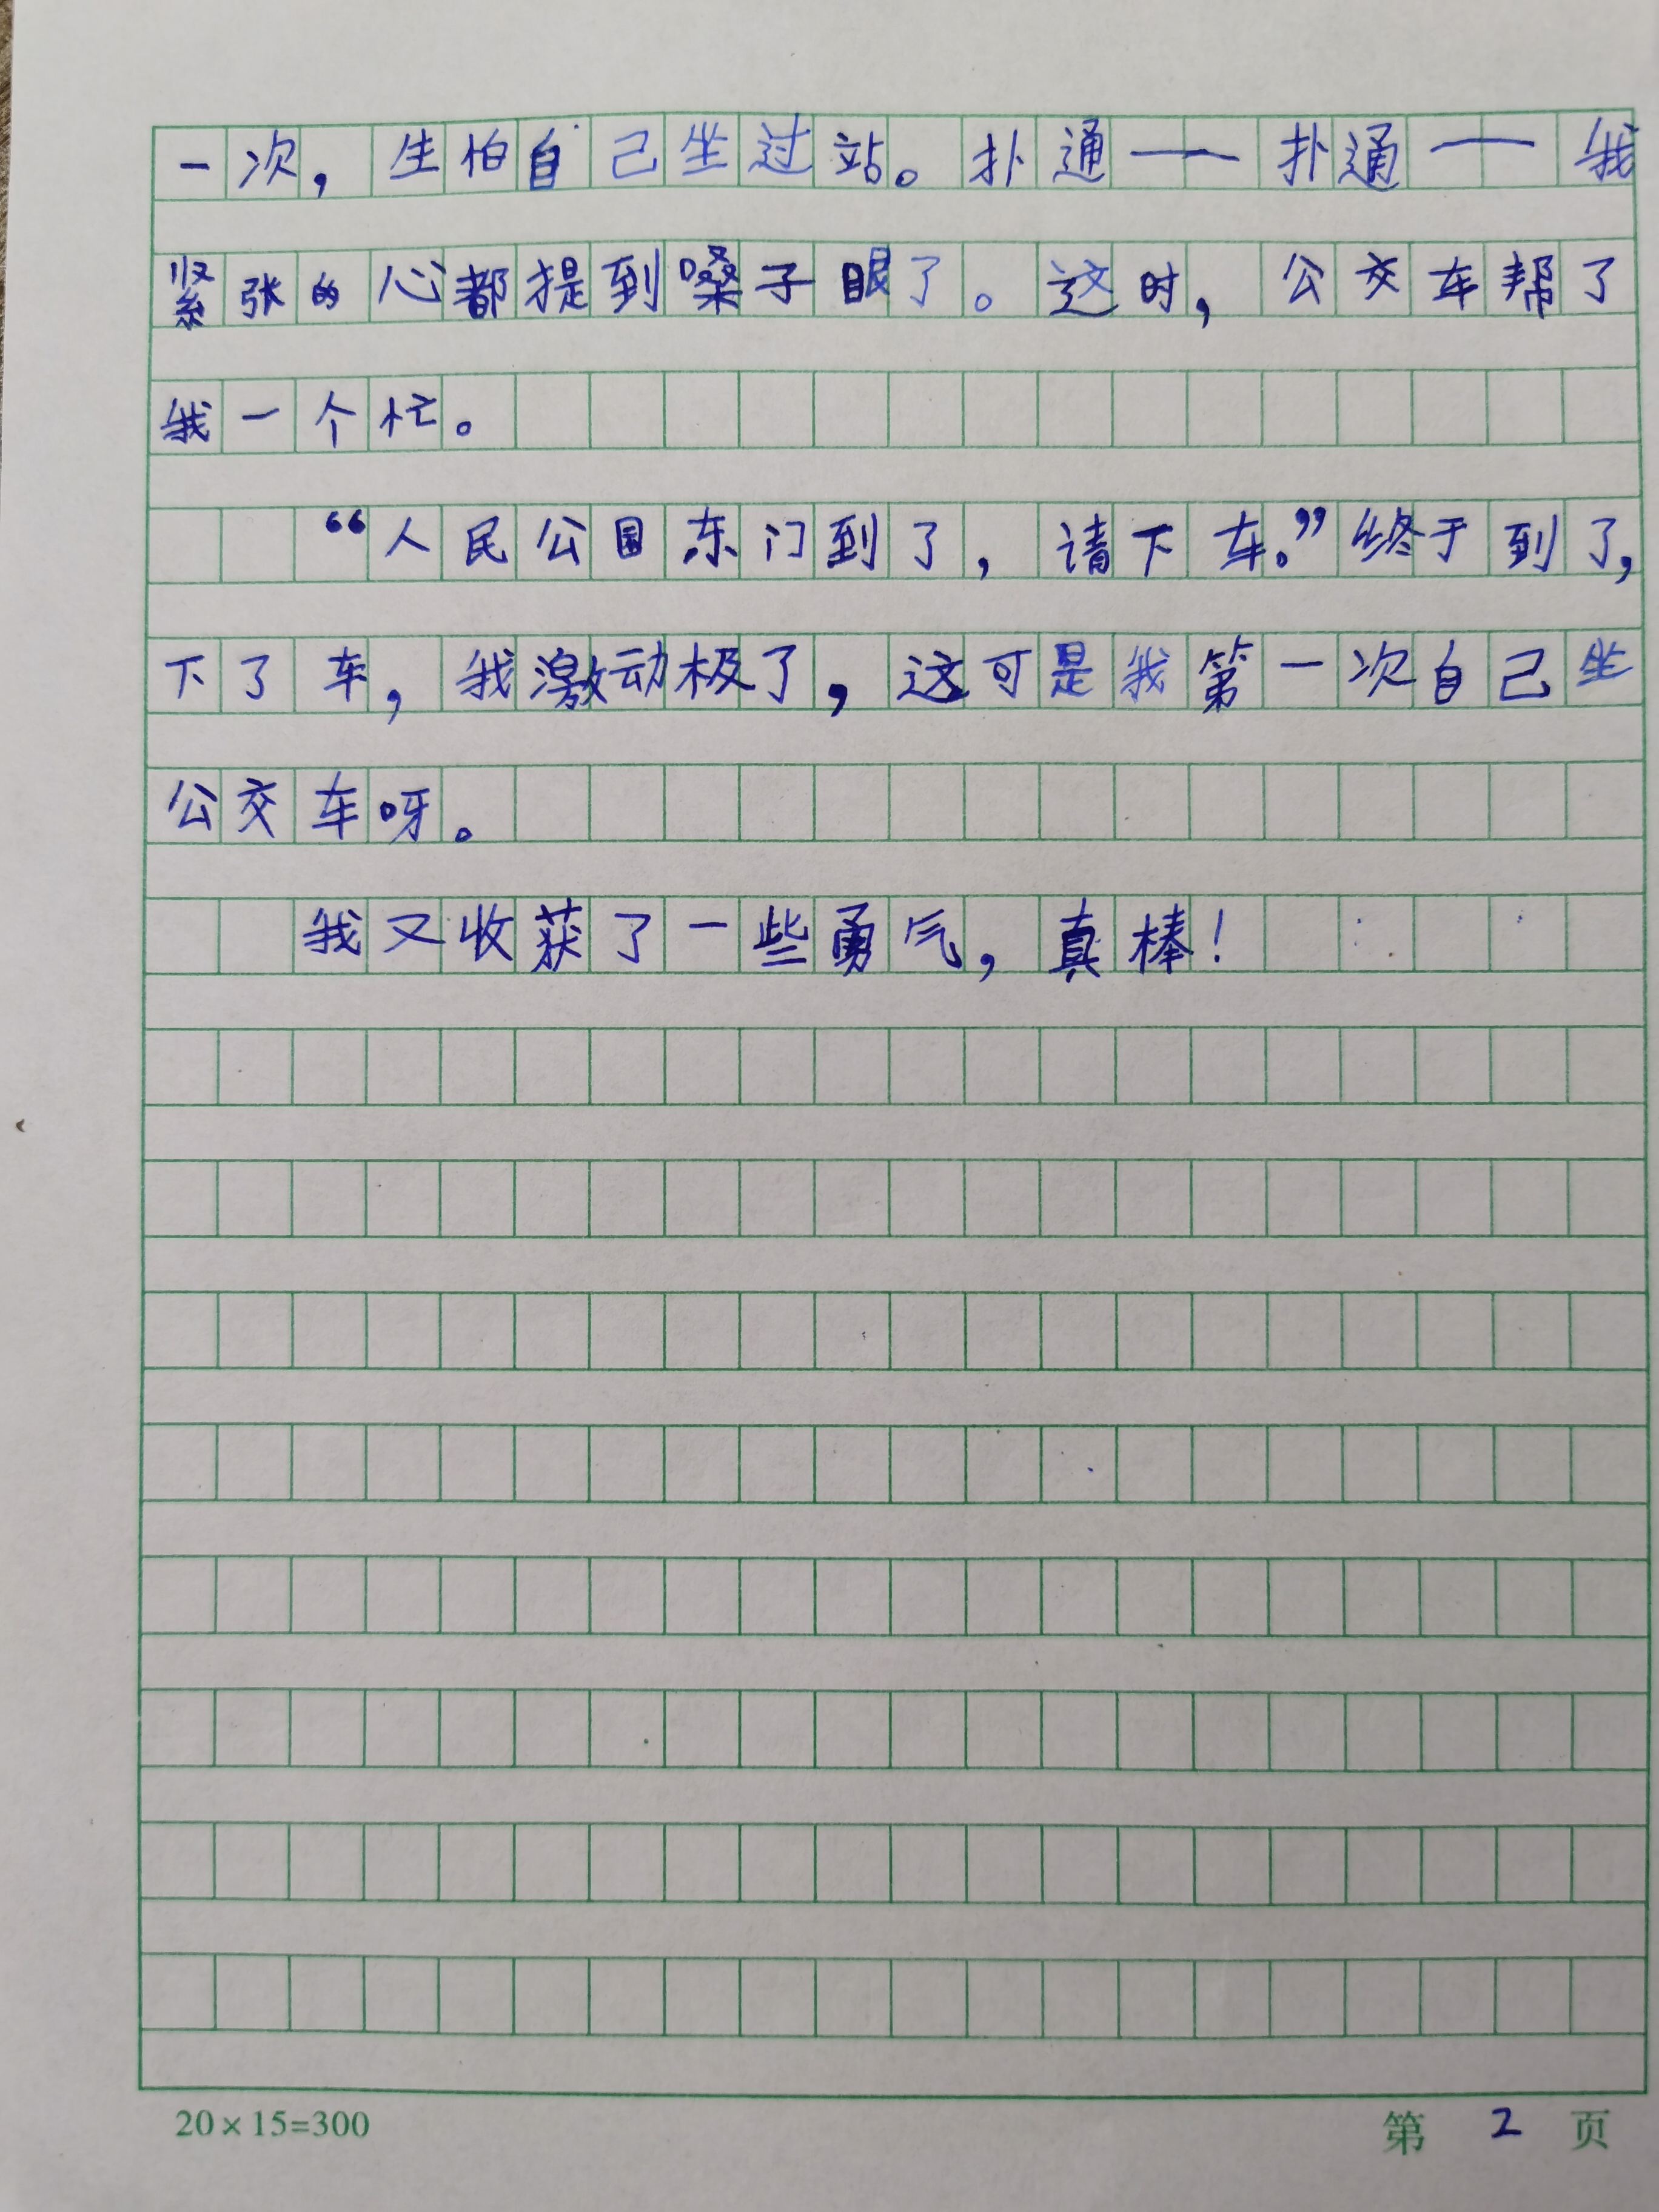 一次，生怕自己坐过站。扑通——扑通——我
紧张的心都提到嗓子眼了。这时，公交车帮了
我一个忙。
“人民公园东门到了，请下车。”终于到了，
下了车，我激动极了，这可是我第一次自己坐
公交车呀。
我又收获了一些勇气，真棒！
20×15=300
第 2 页